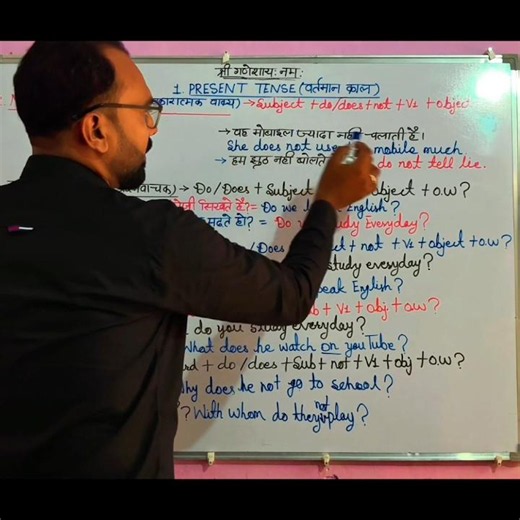 श्री गणेशाय: नम:
1. PRESENT TENSE (वर्तमान काल)
वाक्य) → Subject + do/does + not + V1 + object
→ वह मोबाइल ज्यादा नहीं चलाती है।
She does not use mobile much.
→ हम झूठ नहीं बोलते do not tell lie.
→ Do/Does + Subject object + O.W?
सिखते है? = Do we English?
हो? = Do Study Everyday?
/Does + not + V1 + object + O.W?
study everyday?
English?
+ V1 + obj + O.W?
do you study everyday?
What does he watch on youTube?
+ do/does + Sub + not + V1 + obj + O.W?
Why does he not go to school?
? With whom do they not play?